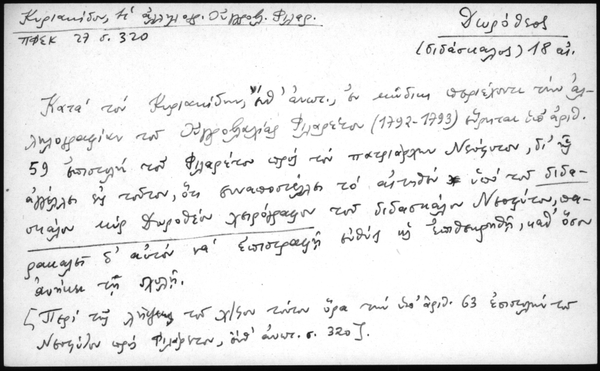 Κυριακίδου, Ἡ ἀλληλογρ. Οὑγγροβλ. Φιλαρ.
ΠΘΕΚ 27 σ. 320
Δωρόθεος
(διδάσκαλος) 18 αἰ.
Κατὰ τὸν Κυριακίδην, ἔνθ' ἀνωτ., ἐν κώδικι περιέχοντι τὴν ἀλ-
ληλογραφίαν τοῦ Οὑγγροβλαχίας Φιλαρέτου (1792-1793) εὕρηται ὑπ' ἀριθ.
59 ἐπιστολὴ τοῦ Φιλαρέτου πρὸς τὸν πατριάρχην Νεόφυτον, δι' ἧς
ἀγγέλλει εἰς τοῦτον, ὅτι συναποστέλλει τὸ αἰτηθὲν ὑπὸ τοῦ διδα-
σκάλου κὺρ Δωροθέου χειρόγραφον τοῦ διδασκάλου Νεοφύτου, πα-
ρακαλεῖ δ' αὐτὸν νὰ ἐπιστραφῇ εὐθὺς ὡς ἐπιθεωρηθῇ, καθ' ὅσον
ἀνήκει τῇ σχολῇ.
[Περὶ τῆς λήψεως τοῦ χ/φου τούτου ὅρα τὴν ὑπ' ἀριθ. 63 ἐπιστολὴν τοῦ
Νεοφύτου πρὸς Φιλάρετον, ἔνθ' ἀνωτ. σ. 320].